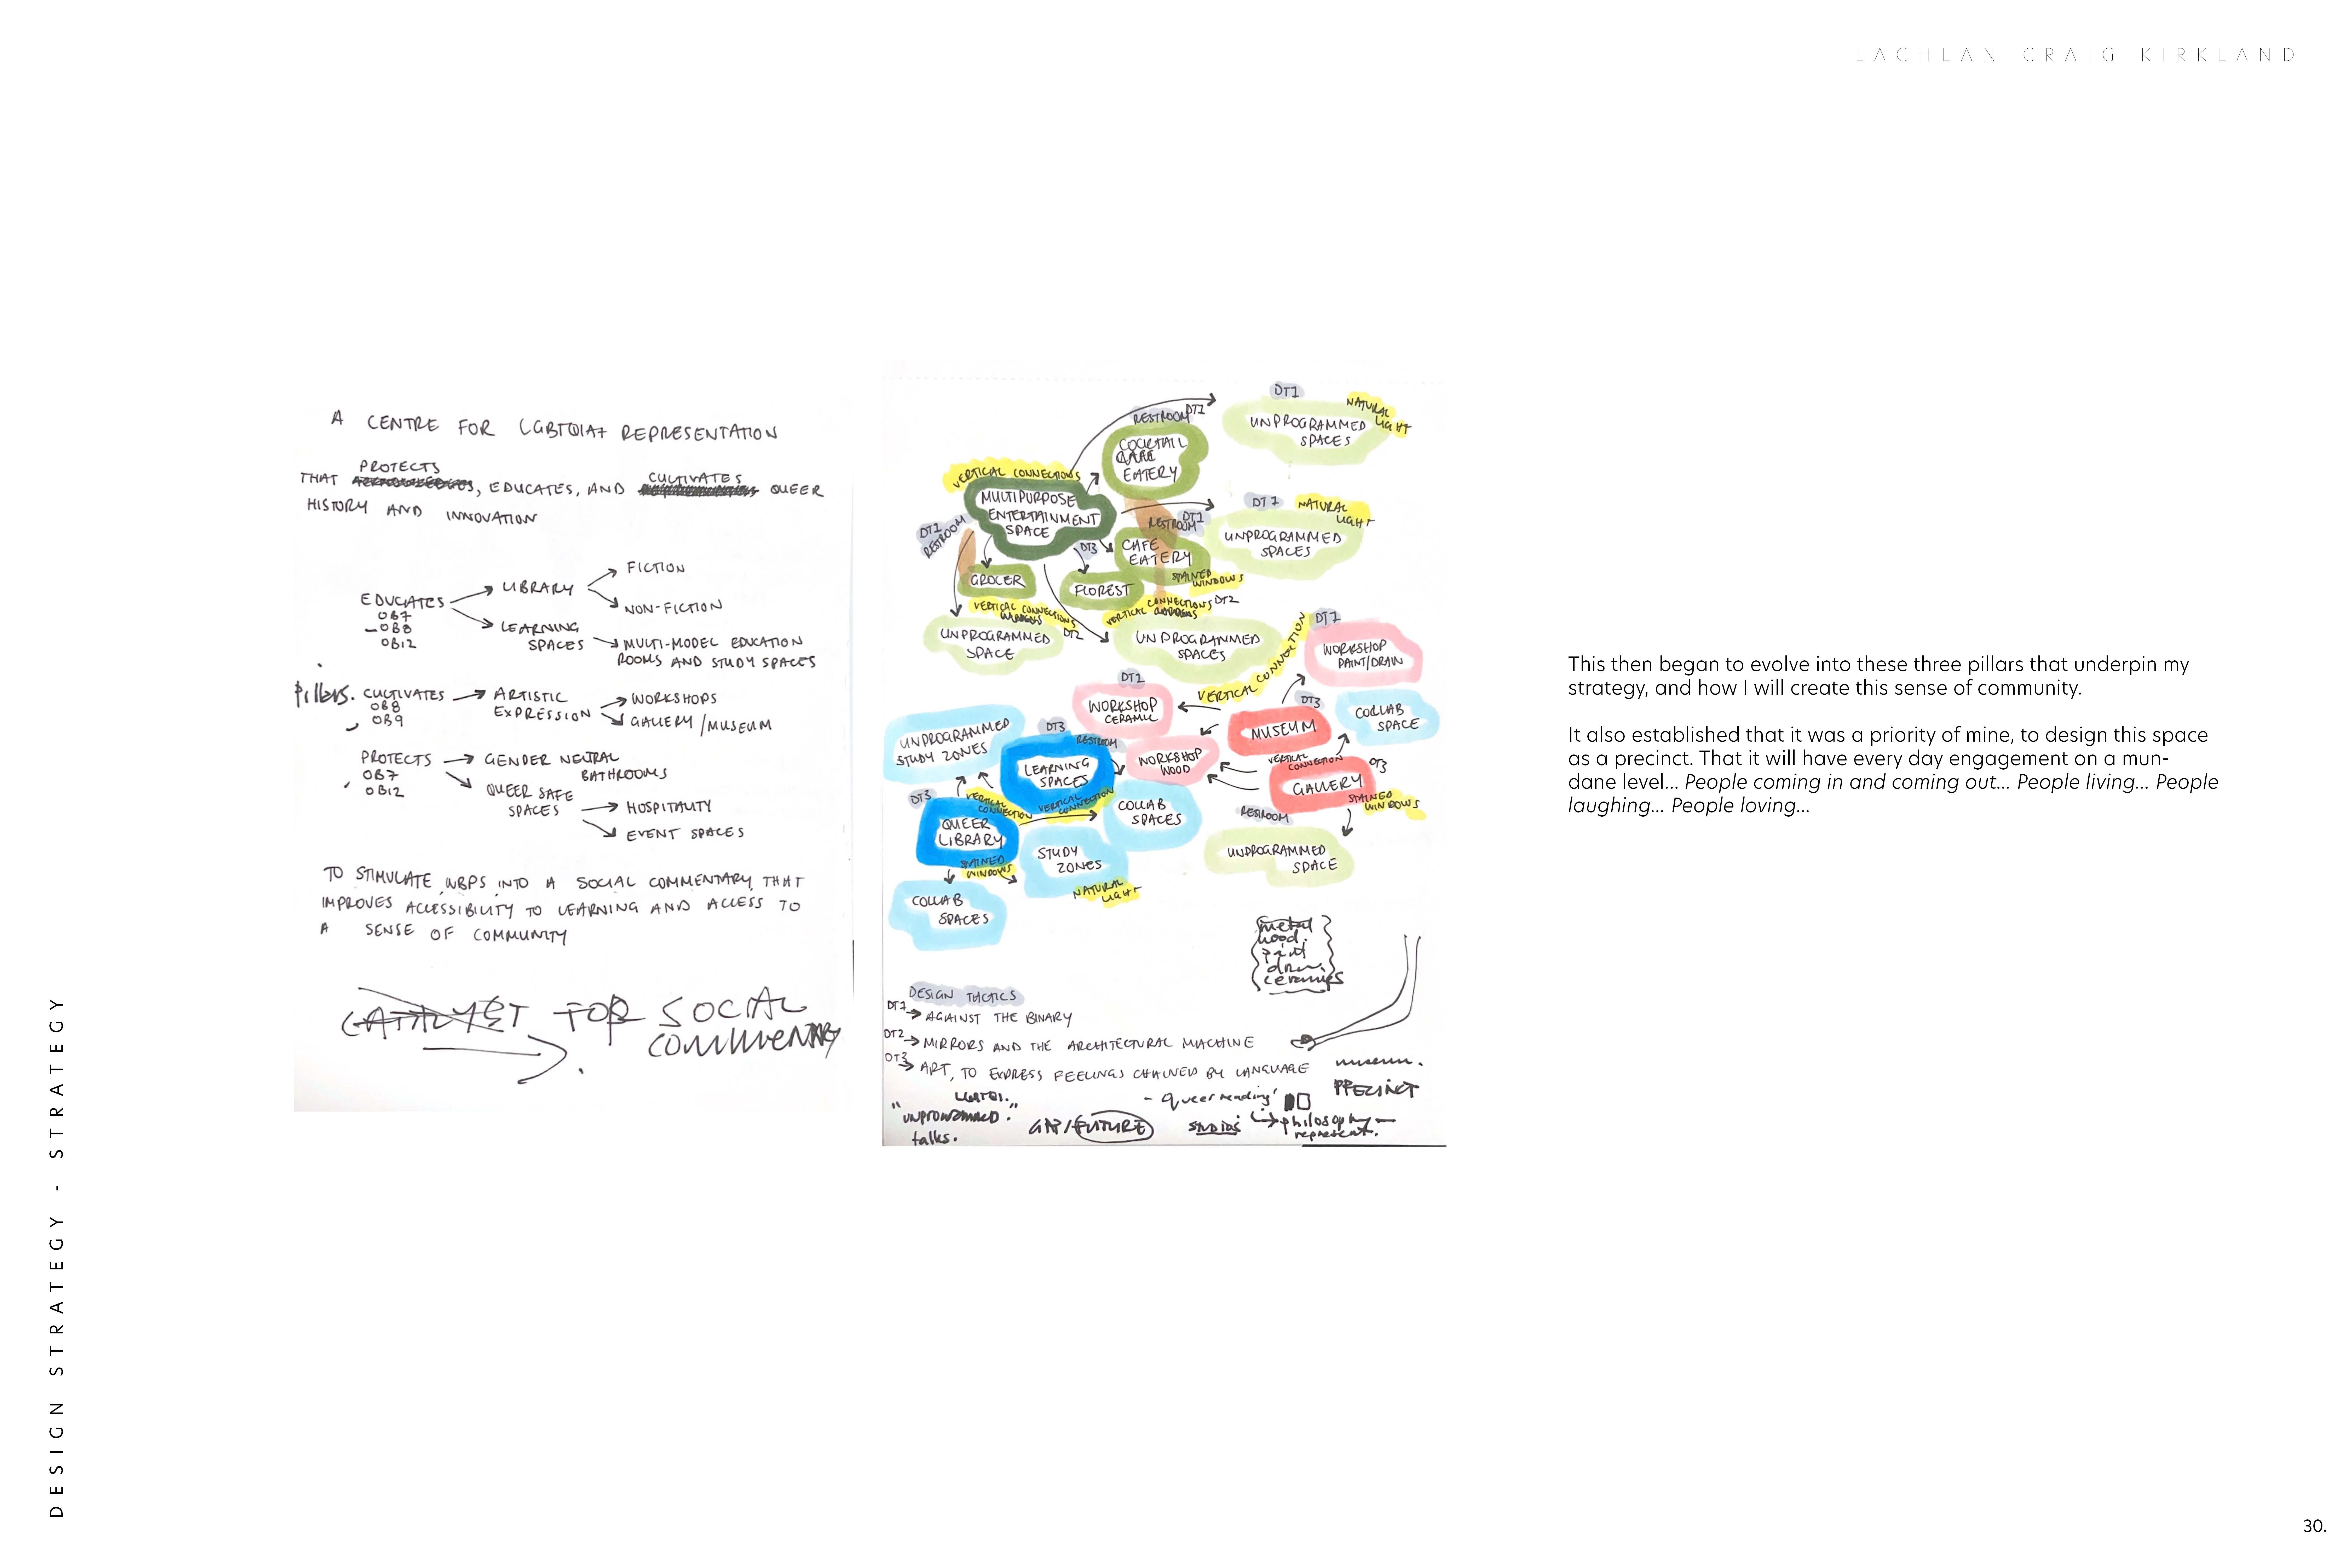 LACHLAN CRAIG KIRKLAND
A CENTRE FOR LGBTQIA+ REPRESENTATION
PROTECTS
CULTIVATES
THAT , EDUCATES, AND QUEER
HISTORY AND INNOVATION
EDUCATES
OB7
OB8
OB12
LIBRARY
FICTION
NON-FICTION
LEARNING
SPACES
MULTI-MODEL EDUCATION
ROOMS AND STUDY SPACES
Pillars.
CULTIVATES
OB8
OB9
ARTISTIC
EXPRESSION
WORKSHOPS
GALLERY/MUSEUM
PROTECTS
OB7
OB12
GENDER NEUTRAL
BATHROOMS
QUEER SAFE
SPACES
HOSPITALITY
EVENT SPACES
TO STIMULATE WBPS INTO A SOCIAL COMMENTARY THAT
IMPROVES ACCESSIBILITY TO LEARNING AND ACCESS TO
A SENSE OF COMMUNITY
CATALYST FOR SOCIAL
COMMENTARY
DT1
NATURAL
LIGHT
UNPROGRAMMED
SPACES
RESTROOM DT1
COCKTAIL
EATERY
VERTICAL CONNECTIONS
MULTIPURPOSE
ENTERTAINMENT
SPACE
DT1
RESTROOM
DT1
NATURAL
LIGHT
UNPROGRAMMED
SPACES
RESTROOM DT1
DT3
CAFE
EATERY
STAINED
WINDOWS
GROCER
FLOREST
VERTICAL CONNECTIONS
DT2
UNPROGRAMMED
SPACE
VERTICAL CONNECTIONS DT2
UNPROGRAMMED
SPACES
VERTICAL CONNECTION
DT1
WORKSHOP
PAINT/DRAW
DT1
WORKSHOP
CERAMIC
DT3
MUSEUM
COLLAB
SPACE
UNPROGRAMMED
STUDY ZONES
DT3
RESTROOM
LEARNING
SPACES
WORKSHOP
WOOD
VERTICAL
CONNECTION
DT3
GALLERY
STAINED
WINDOWS
RESTROOM
UNPROGRAMMED
SPACE
DT3
VERTICAL
CONNECTION
VERTICAL
CONNECTION
COLLAB
SPACES
QUEER
LIBRARY
STAINED
WINDOWS
STUDY
ZONES
NATURAL
LIGHT
COLLAB
SPACES
metal
wood.
paint
draw.
ceramics
DESIGN TACTICS
DT1 AGAINST THE BINARY
DT2 MIRRORS AND THE ARCHITECTURAL MACHINE
DT3 ART, TO EXPRESS FEELINGS CHAINED BY LANGUAGE
museum.
PRECINCT
"unprogrammed."
talks.
GAP/FUTURE
- queer reading'
STUDIOS
philosophy
represent.
This then began to evolve into these three pillars that underpin my
strategy, and how I will create this sense of community.
It also established that it was a priority of mine, to design this space
as a precinct. That it will have every day engagement on a mun-
dane level... People coming in and coming out... People living... People
laughing... People loving...
DESIGN STRATEGY - STRATEGY
30.